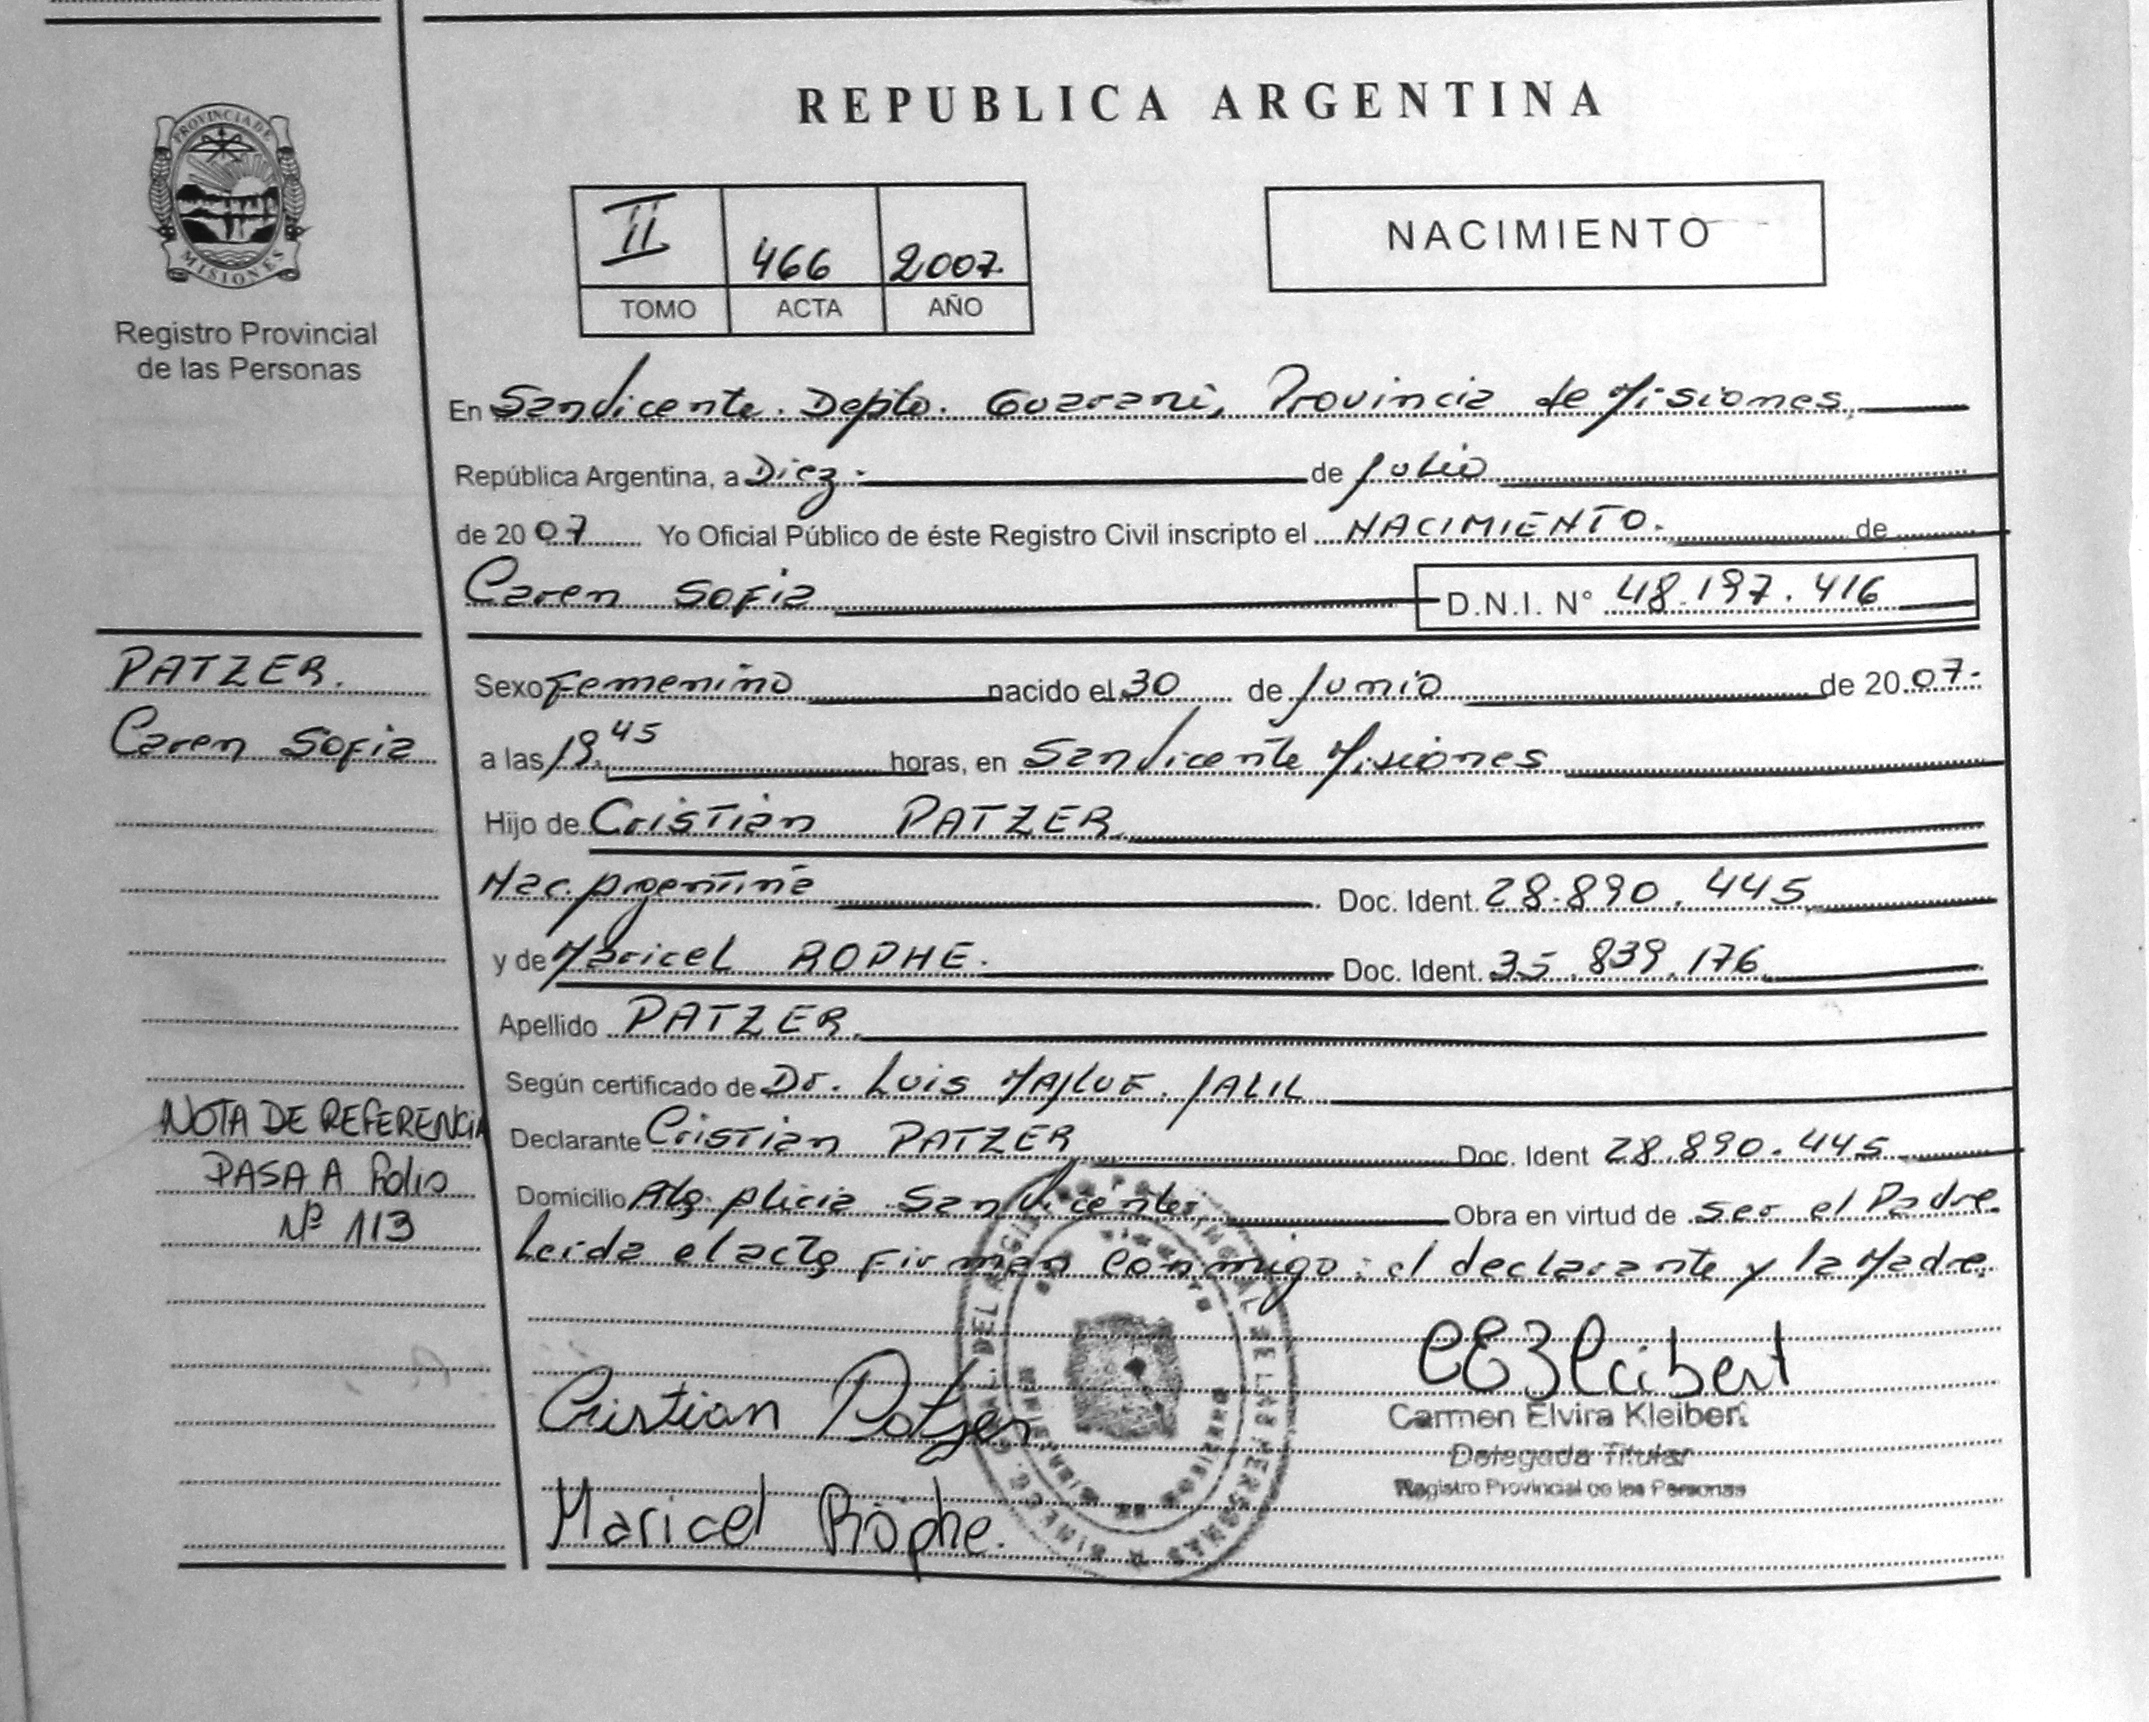 REPUBLICA ARGENTINA
PROVINCIA DE
MISIONES
Registro Provincial
de las Personas
II 466 2007.
TOMO ACTA AÑO
NACIMIENTO
En San Vicente. Depto. Guarani, Provincia de Misiones,
República Argentina, a Diez.- de Julio
de 2007 Yo Oficial Público de éste Registro Civil inscripto el NACIMIENTO. de
Caren Sofia D.N.I. N° 48.197.416
PATZER.
Caren Sofia
Sexo Femenino nacido el 30 de Junio de 2007.
a las 19.45 horas, en San Vicente Misiones
Hijo de Cristian PATZER
Nac. Argentina Doc. Ident. 28.890.445
y de Maricel ROPHE. Doc. Ident. 35.839.176
Apellido PATZER.
Según certificado de Dr. Luis MAJLUF. JALIL
Declarante Cristian PATZER Doc. Ident 28.890.445
Domicilio Alicia San Vicente, Obra en virtud de ser el Padre
Leida el acta firman conmigo: el declarante y la Madre.
NOTA DE REFERENCIA
PASA A Folio
Nº 113
Cristian Patzer
Maricel Röphe.
CEKleibert
Carmen Elvira Kleibert
Delegada Titular
Registro Provincial de las Personas